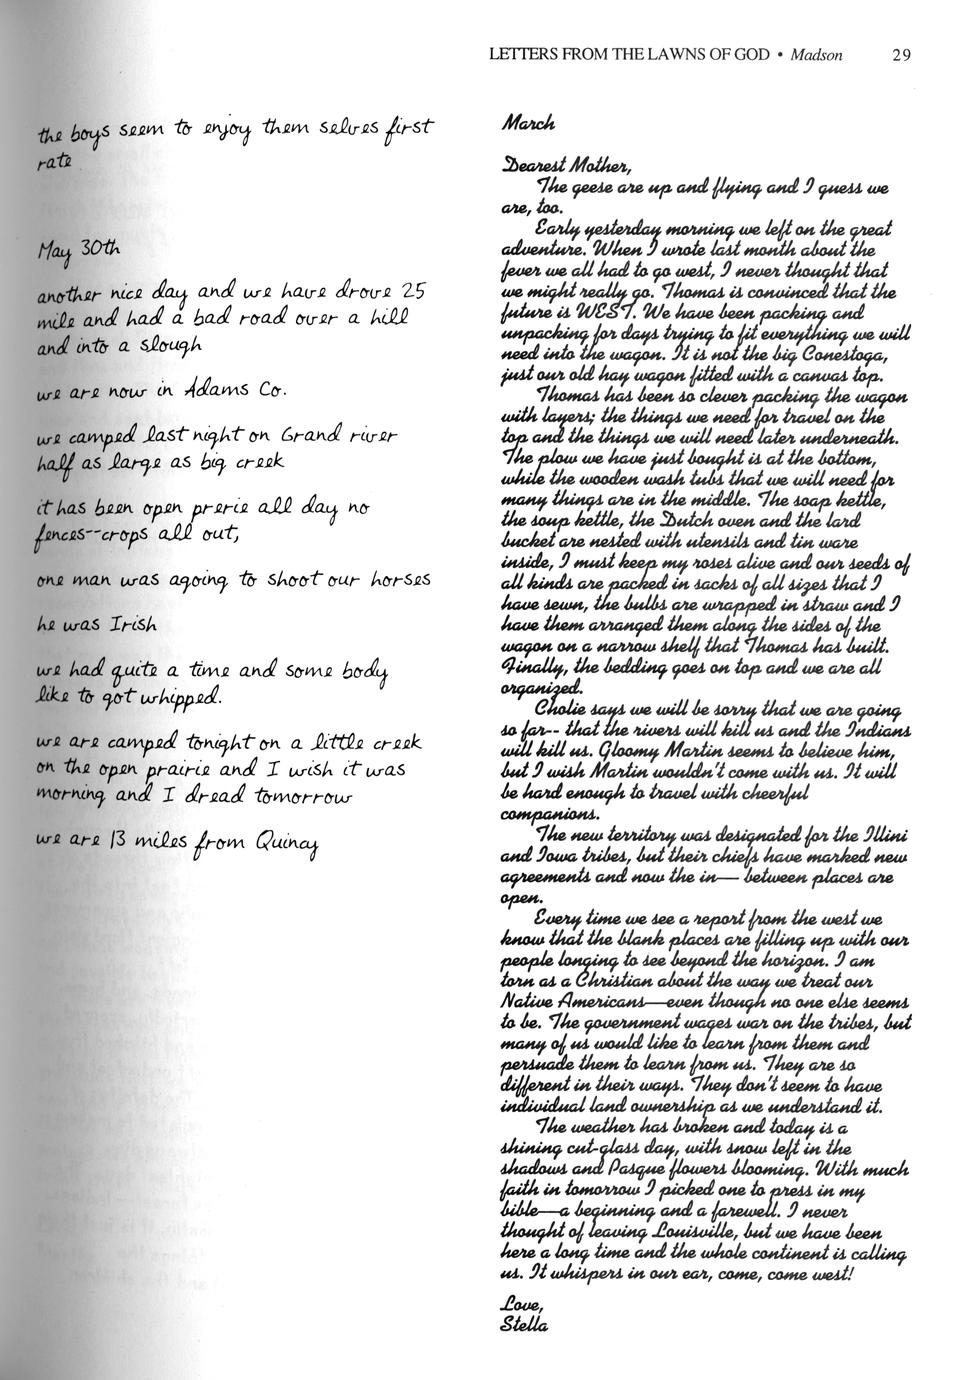 LETTERS FROM THE LAWNS OF GOD • Madson 29
the boys seem to enjoy them selves first
rate
May 30th
another nice day and we have drove 25
mile and had a bad road over a hill
and into a slough
we are now in Adams Co.
we camped last night on Grand river
half as large as big creek
it has been open prerie all day no
fences--crops all out,
one man was agoing to shoot our horses
he was Irish
we had quite a time and some body
like to got whipped.
we are camped tonight on a little creek
on the open prairie and I wish it was
morning and I dread tomorrow
we are 13 miles from Quincy
March
Dearest Mother,
The geese are up and flying and I guess we
are, too.
Early yesterday morning we left on the great
adventure. When I wrote last month about the
fever we all had to go west, I never thought that
we might really go. Thomas is convinced that the
future is WEST. We have been packing and
unpacking for days trying to fit everything we will
need into the wagon. It is not the big Conestoga,
just our old hay wagon fitted with a canvas top.
Thomas has been so clever packing the wagon
with layers; the things we need for travel on the
top and the things we will need later underneath.
The plow we have just bought is at the bottom,
while the wooden wash tubs that we will need for
many things are in the middle. The soap kettle,
the soup kettle, the Dutch oven and the lard
bucket are nested with utensils and tin ware
inside, I must keep my roses alive and our seeds of
all kinds are packed in sacks of all sizes that I
have sewn, the bulbs are wrapped in straw and I
have them arranged them along the sides of the
wagon on a narrow shelf that Thomas has built.
Finally, the bedding goes on top and we are all
organized.
Cholie says we will be sorry that we are going
so far-- that the rivers will kill us and the Indians
will kill us. Gloomy Martin seems to believe him,
but I wish Martin wouldn't come with us. It will
be hard enough to travel with cheerful
companions.
The new territory was designated for the Illini
and Iowa tribes, but their chiefs have marked new
agreements and now the in— between places are
open.
Every time we see a report from the west we
know that the blank places are filling up with our
people longing to see beyond the horizon. I am
torn as a Christian about the way we treat our
Native Americans—even though no one else seems
to be. The government wages war on the tribes, but
many of us would like to learn from them and
persuade them to learn from us. They are so
different in their ways. They don't seem to have
individual land ownership as we understand it.
The weather has broken and today is a
shining cut-glass day, with snow left in the
shadows and Pasque flowers blooming. With much
faith in tomorrow I picked one to press in my
bible—a beginning and a farewell. I never
thought of leaving Louisville, but we have been
here a long time and the whole continent is calling
us. It whispers in our ear, come, come west!
Love,
Stella